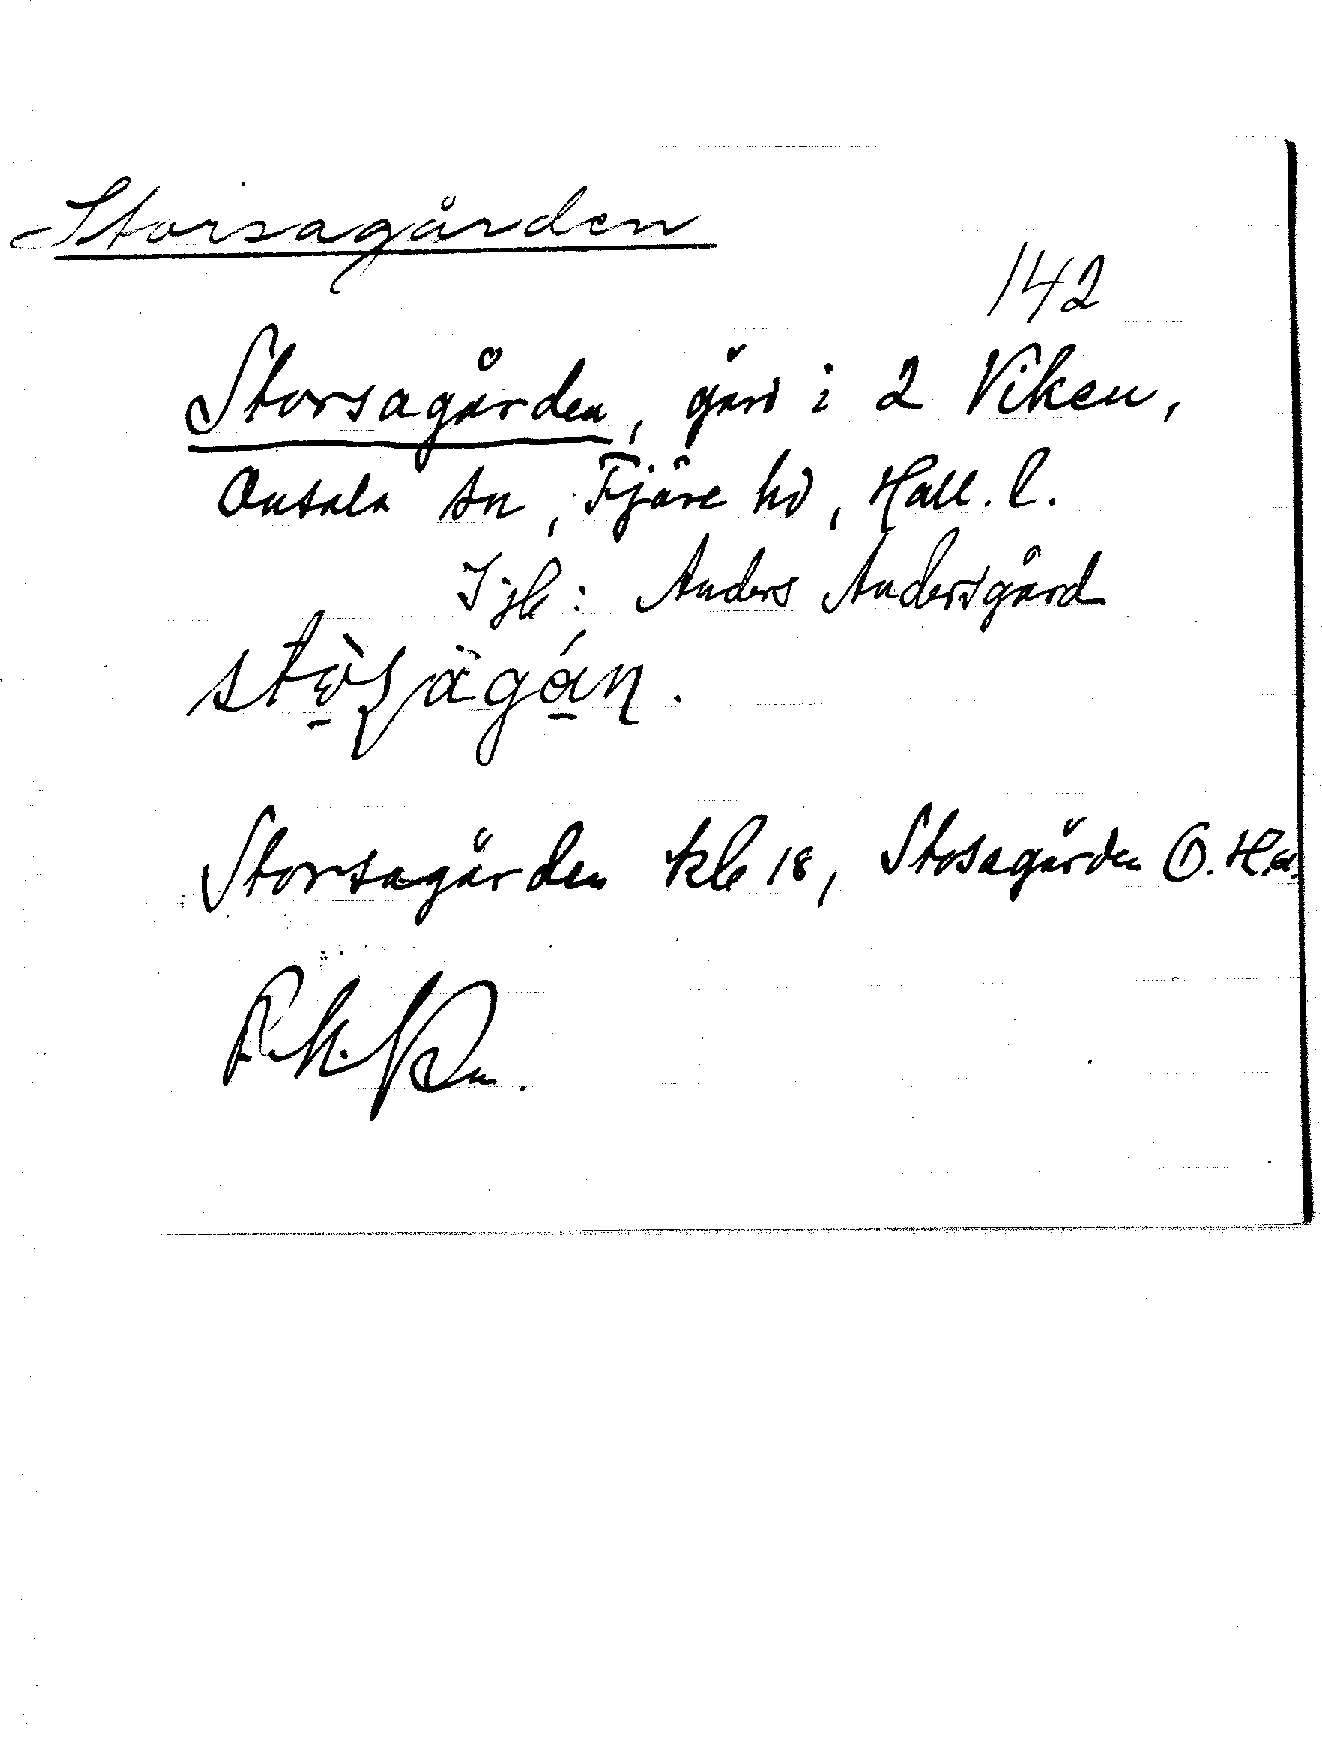 Storsagården
142
Storsagården, gård i 2 Viken,
Onsala sn, Fjäre hd, Hall. l.
Anders Andersgård
Storsagården kb 18, Stosagården